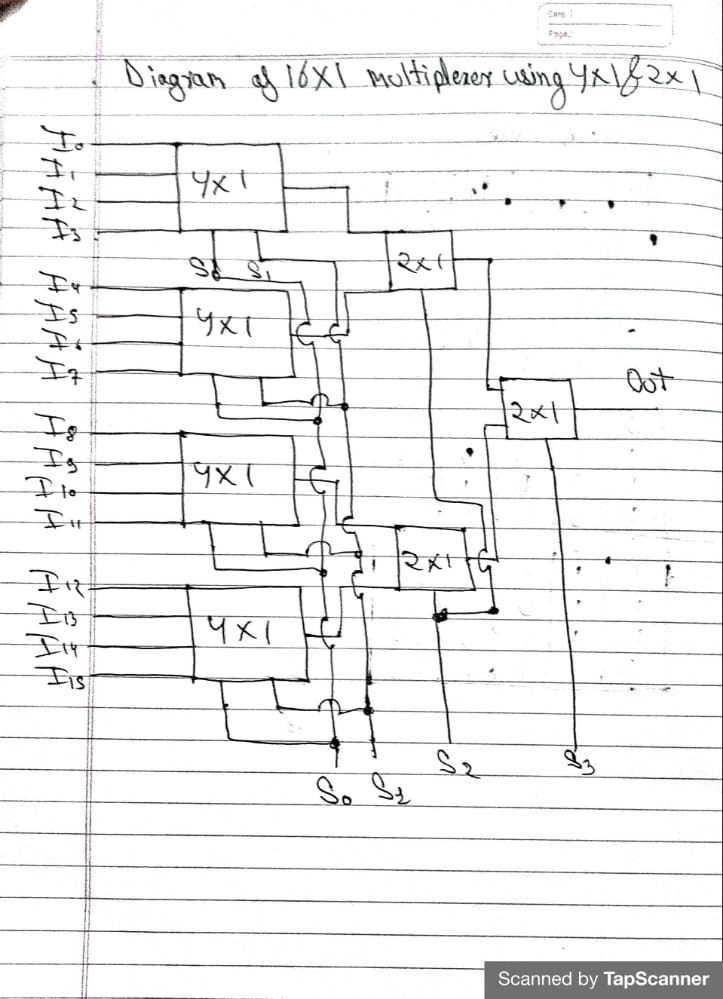 Date :
Page :
Diagram of 16X1 multiplexer using 4x1 & 2x1
I0
I1
I2
I3
4x1
S0 S1
2x1
I4
I5
I6
I7
4x1
Out
2x1
I8
I9
I10
I11
4x1
2x1
I12
I13
I14
I15
4x1
S0 S1 S2 S3
Scanned by TapScanner